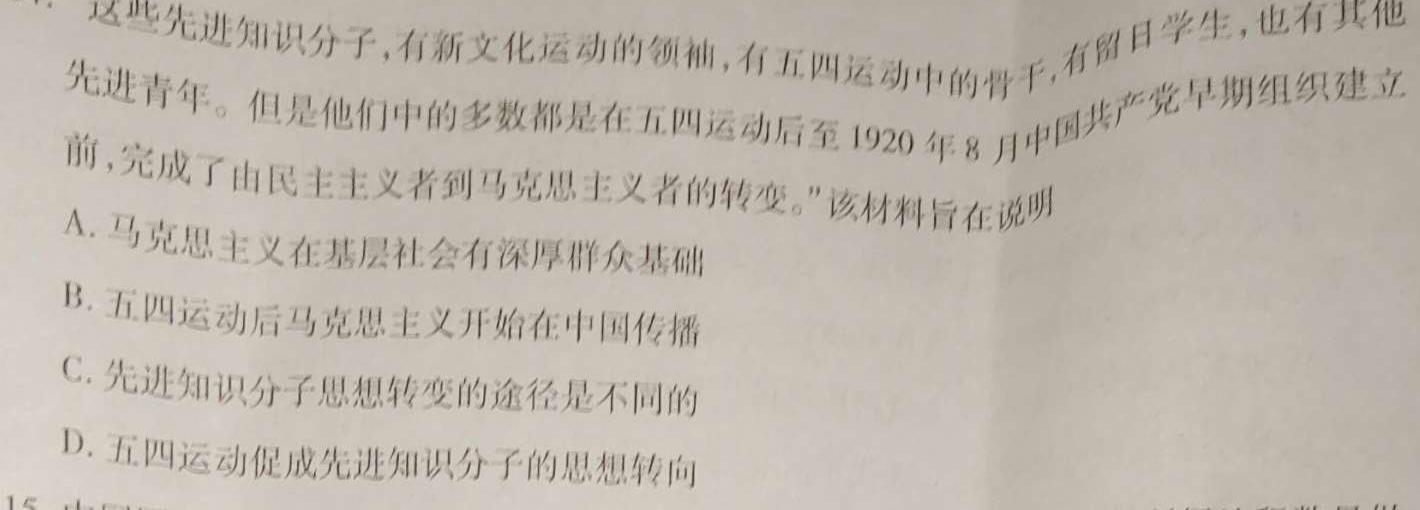 这些先进知识分子,有新文化运动的领袖,有五四运动中的骨干,有留日学生,也有其他
先进青年。但是他们中的多数都是在五四运动后至1920年8月中国共产党早期组织建立
前,完成了由民主主义者到马克思主义者的转变。”该材料旨在说明
A. 马克思主义在基层社会有深厚群众基础
B. 五四运动后马克思主义开始在中国传播
C. 先进知识分子思想转变的途径是不同的
D. 五四运动促成先进知识分子的思想转向
15.